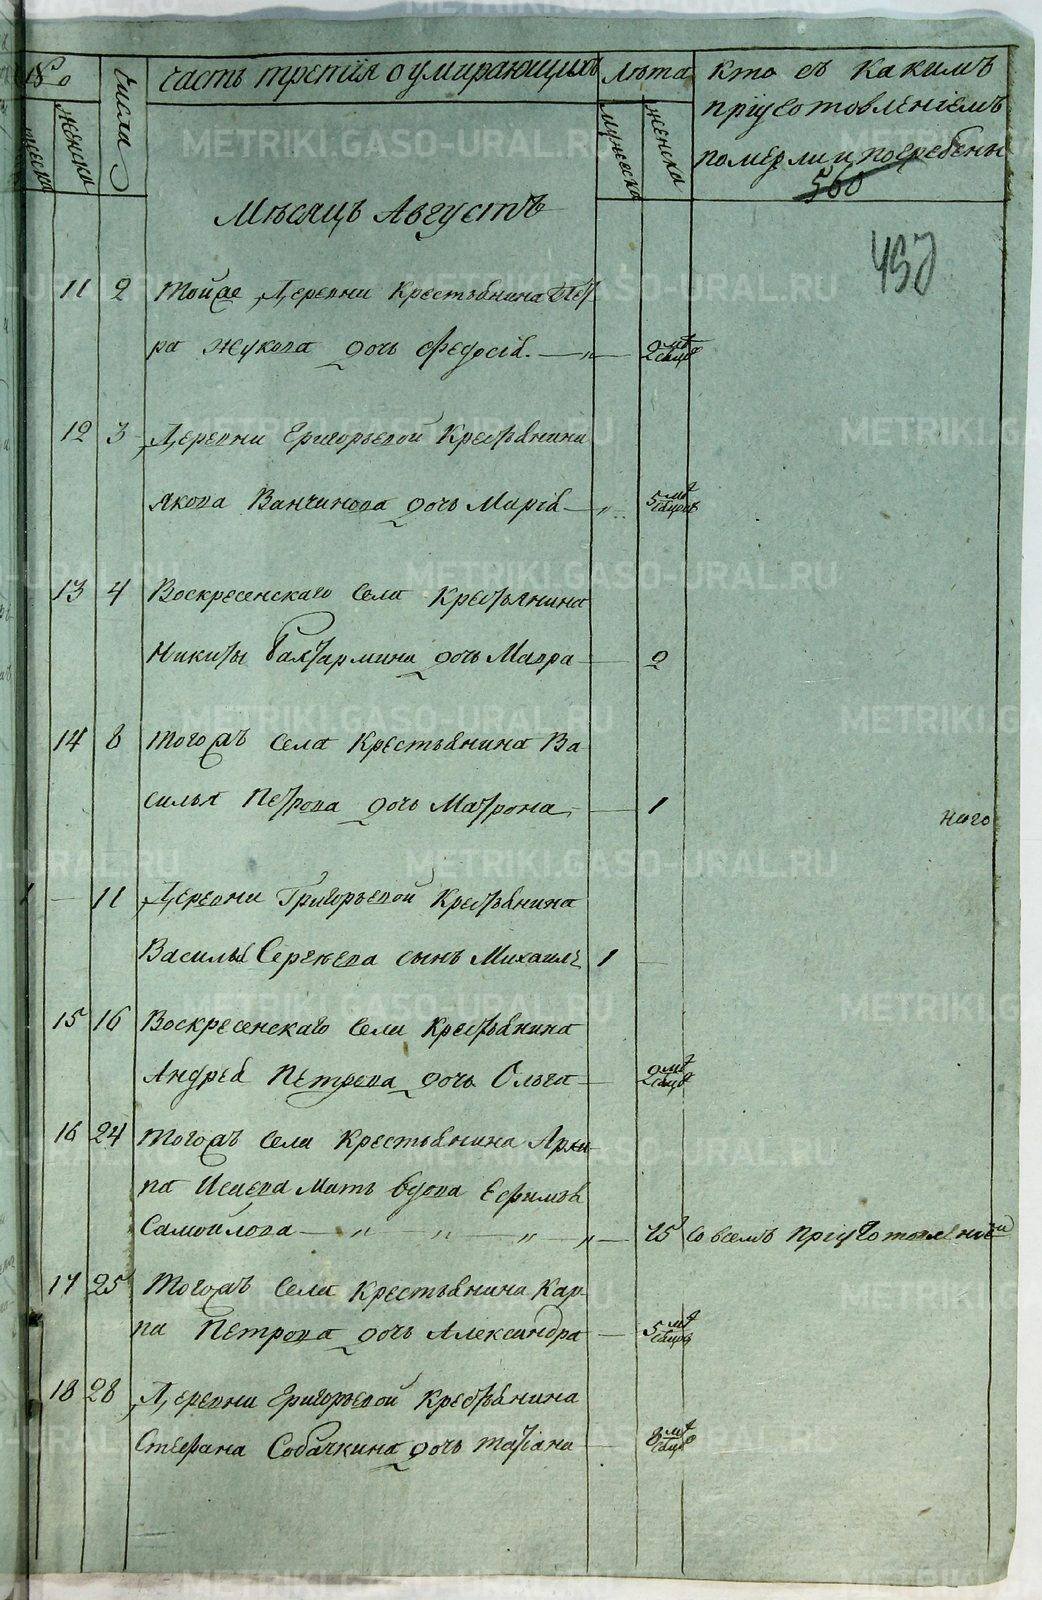 №
мужеска
женска
числа
часть третия о умирающихъ
лѣта
мужеска
женска
кто съ какимъ
пріуготовленіемъ
померли и погребены
560
457
Мѣсяцъ Августъ
11 2 Тойже Деревни Крестьянина Пет
ра Жукова дочь Федосія — 2 мѣсяцъ
12 3 Деревни Григорьевой Крестьянина
Якова Ванчинова дочь Марія — 5 мѣсяцовъ
13 4 Воскресенскаго Села Крестьянина
Никиты Бахтармина дочь Мавра — 2
14 8 Тогожъ Села Крестьянина Ва
силья Петрова дочь Матрона — 1
наго
1 — 11 Деревни Григорьевой Крестьянина
Василья Сергѣева сынъ Михаилъ 1 —
15 16 Воскресенскаго Села Крестьянина
Андрея Петрова дочь Ольга — 2 мѣсяцъ
16 24 Тогожъ Села Крестьянина Архи
па Исаева Мать вдова Ефимья
Самойлова — 75 Со всемъ пріуготовленіем
17 25 Тогожъ Села Крестьянина Кар
па Петрова дочь Александра — 5 мѣсяцовъ
18 28 Деревни Григорьевой Крестьянина
Стефана Собачкина дочь Татіана — 8 мѣсяцъ
METRIKI.GASO-URAL.RU